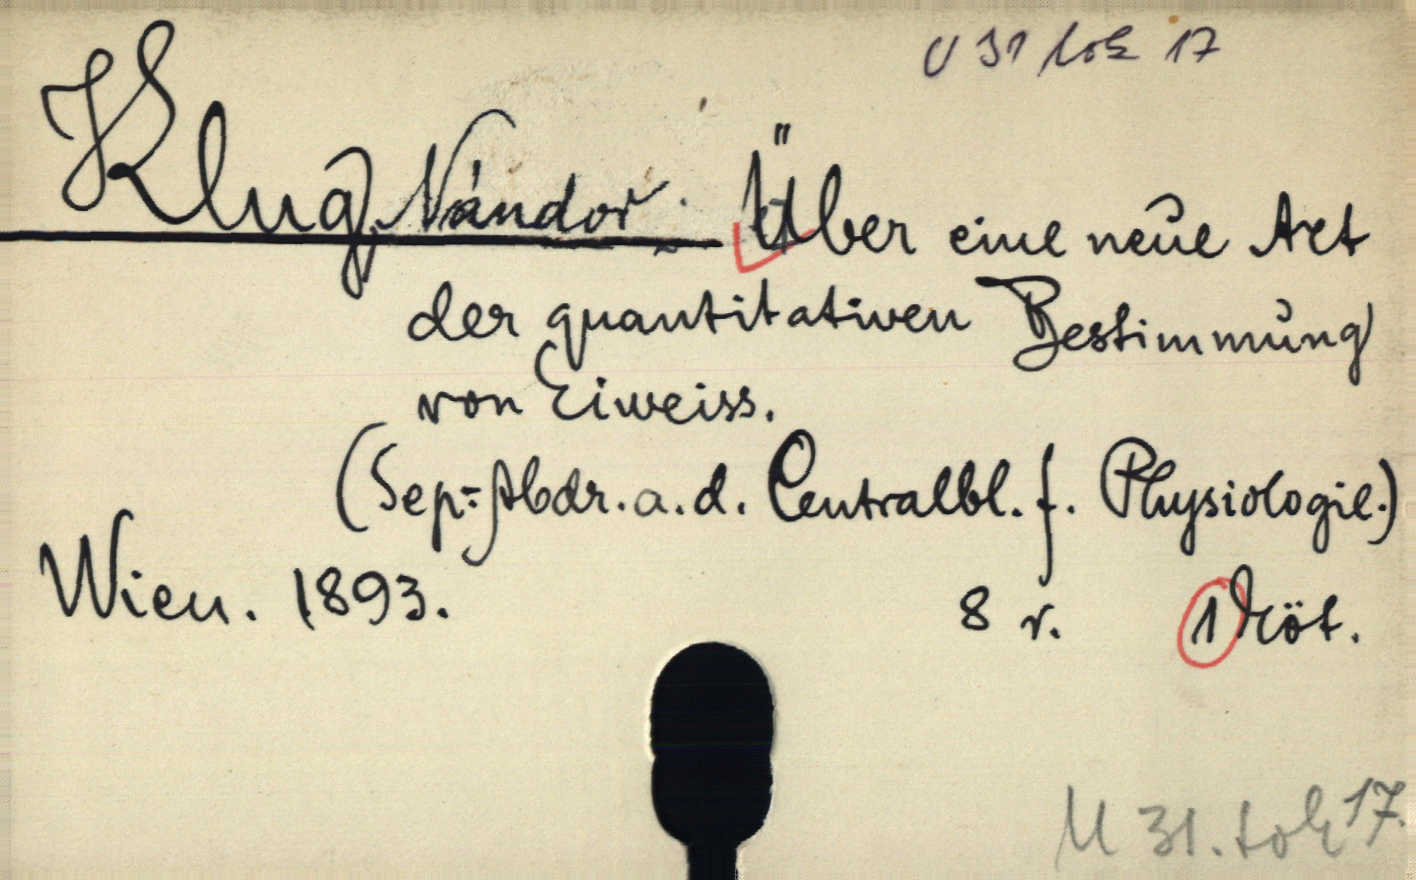 U 31 tok 17
Klug, Nándor. Über eine neue Art
der quantitativen Bestimmung
von Eiweiss.
(Sep.-Abdr. a. d. Centralbl. f. Physiologie.)
Wien. 1893. 8 r. 1 köt.
U 31. tok 17.